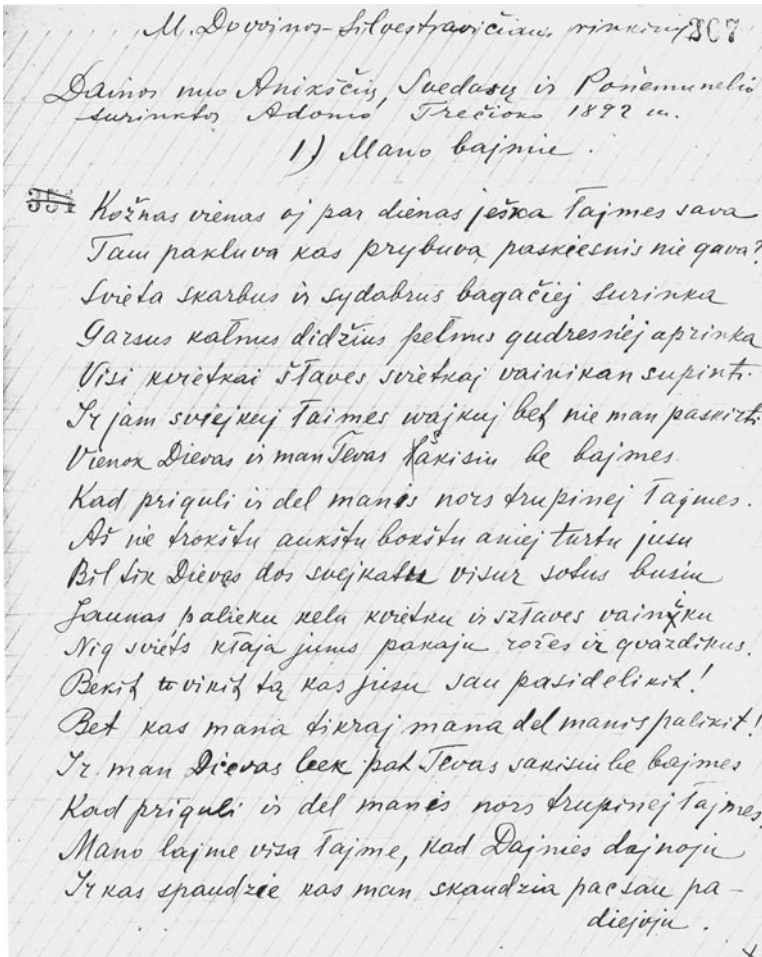 M. Dovoinos-Silvestravičiaus rinkiny 307
Dainos nuo Anikščių, Svedasų ir Ponemunelio
surinktos Adomo Trečioko 1892 m.
1) Mano bajmie.
351 Kožnas vienas oj par dienas ješka łajmes sava
Tam pakluva kas prybuva paskiesnis nie gava?
Svieta skarbus ir sydabrus bagačiej surinka
Garsus kałnus didžius pełnus gudresniej aprinka
Visi kvietkai šłaves svietkaj vainikan supinti.
Ir jam sviejkuj łaimes wajkuj bet nie man paskirti
Vienok Dievas ir man Tevas šakisiu be bajmes
Kad priguli ir del manis nors trupinej łajmes.
Aš nie trokštu aukštu bokštu aniej turtu jusu
Bil tik Dievas dos svejkatu visur sotus busiu
Jaunas palieku kelu kvietku ir szłaves vainiku
Nig sviets kłaja jums pakaju rožes ir gvazdikus.
Bekit vikit tą kas jusu sau pasidelikit!
Bet kas mana tikraj mana del manis palikit!
Ir man Dievas teek pat Tevas sakisiu be bajmes
Kad priguli ir del manes nors trupinej łajmes.
Mano łajme visa łajme, kad Dajnies dajnoju
Ir kas spaudzie kas man skaudzia pac sau pa-
diejoju.